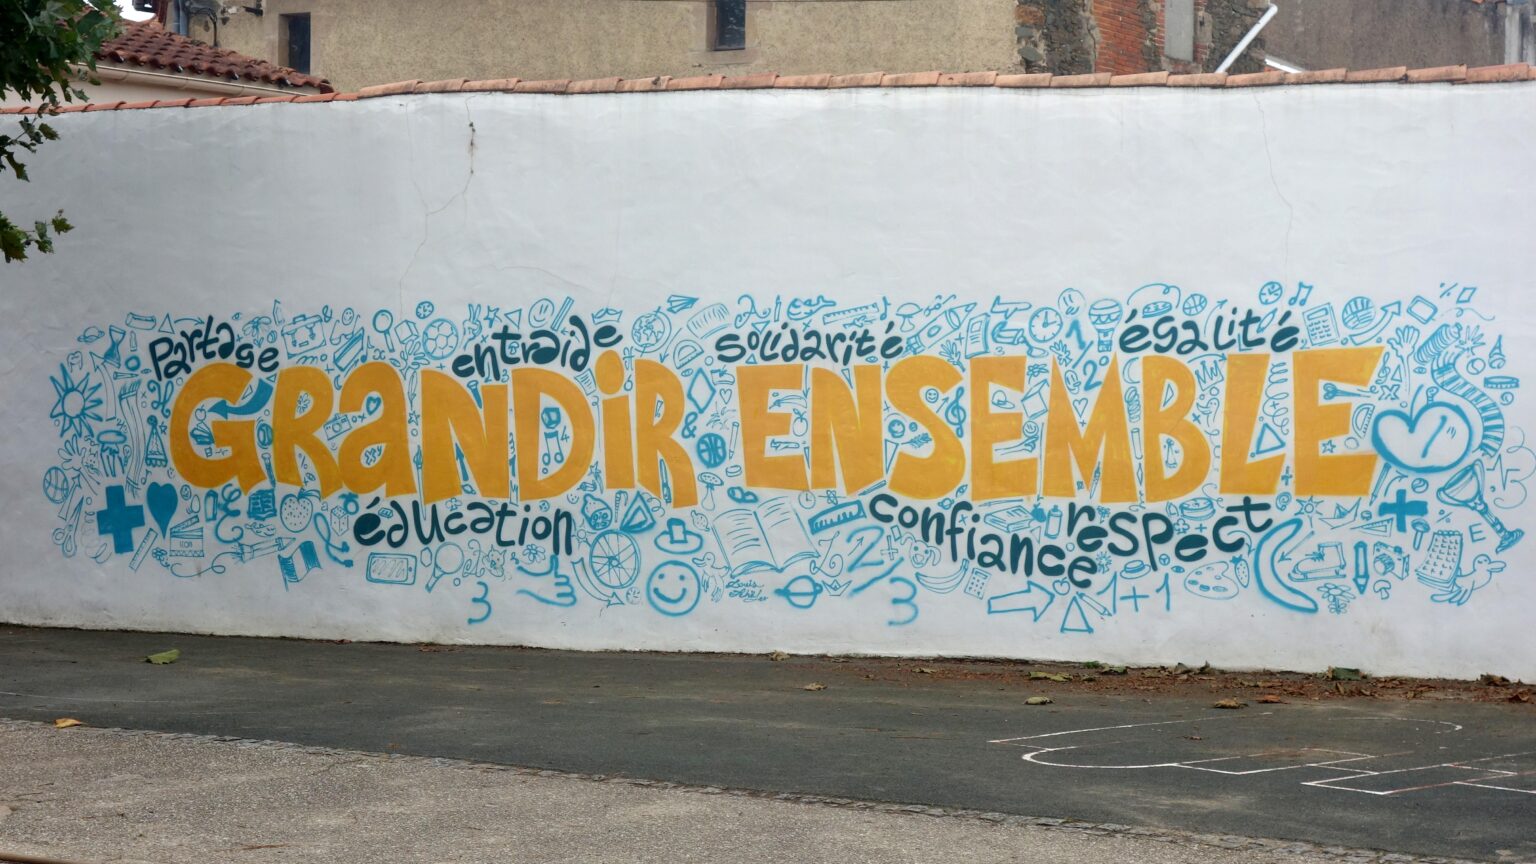 partage
entraide
solidarité
égalité
GRaNDiR ENSEMBLE
éducation
confiance
respect
1
2
2
3
3
1+1
E